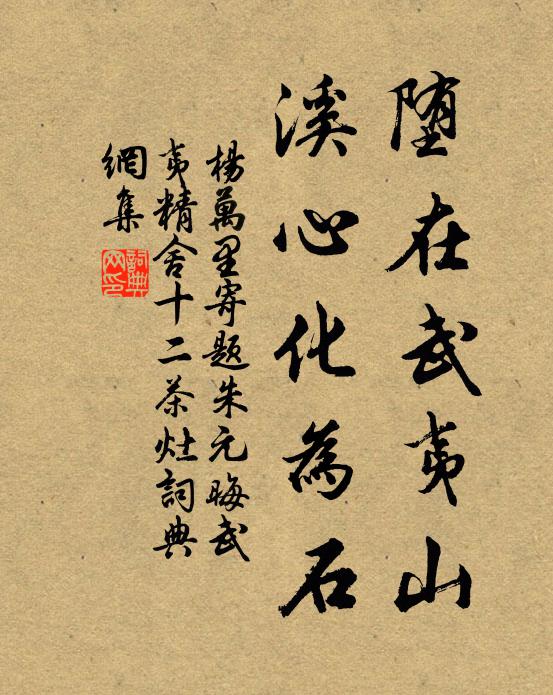 堕在武夷山
溪心化為石
楊萬里寄题朱元晦武
夷精舍十二茶灶詞典
網集
詞典网印